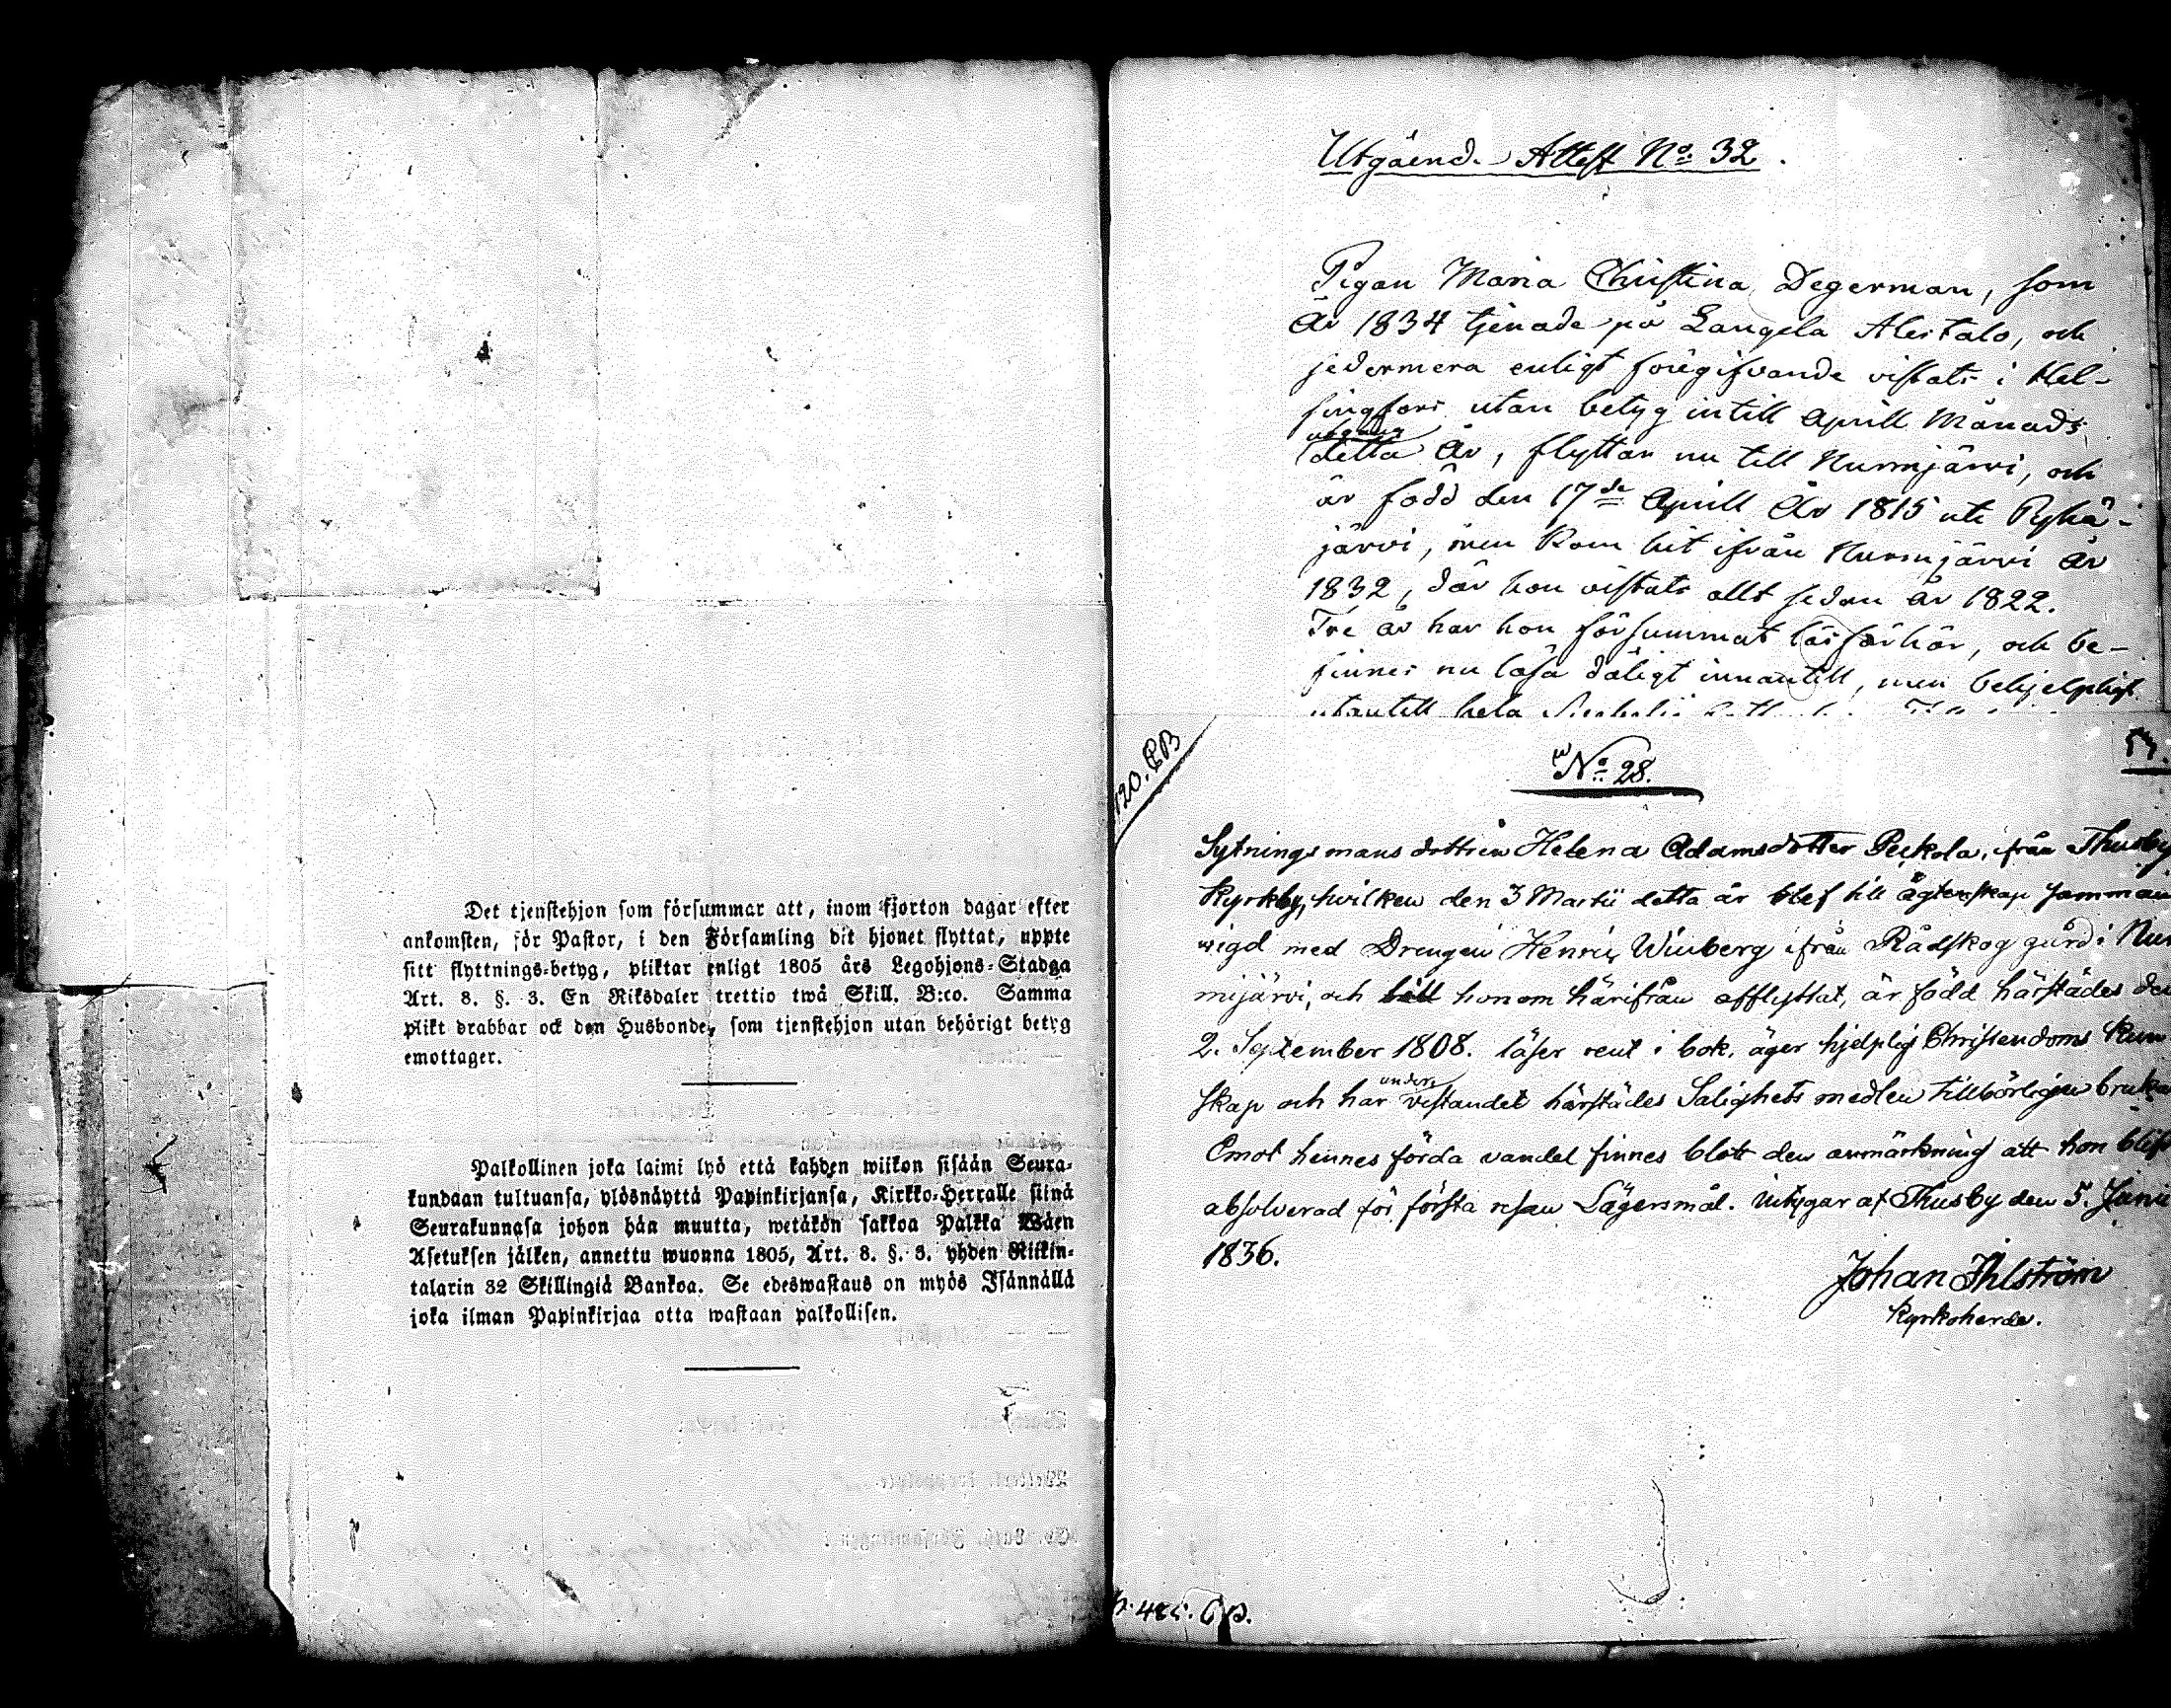 Det tjenstehjon som försummar att, inom fjorton dagar efter
ankomsten, för Pastor, i den Församling dit hjonet flyttat, uppte
sitt flyttnings-betyg, pliktar enligt 1805 års Legohjons-Stadga
Art. 8. §. 3. En Riksdaler trettio twå Skill. B:co. Samma
plikt drabbar ock den Husbonde, som tjenstehjon utan behörigt betyg
emottager.
Palkollinen joka laimi lyö että kahden wiikon sisään Seura-
kundaan tultuansa, ylösnäyttä Papinkirjansa, Kirkko-Herralle siinä
Seurakunnasa johon hän muutta, wetäkön sakkoa Palkka Wäen
Asetuksen jälken, annettu wuonna 1805, Art. 8. §. 3. yhden Riikin-
talarin 32 Skillingiä Bankoa. Se edeswastaus on myös Isännällä
joka ilman Papinkirjaa otta wastaan palkollisen.
Utgåend. Attest No: 32.
Pigan Maria Christina Degerman, som
År 1834 tjenade på Langela Alestalo, och
jedermera enligt föregifvande vistats i Hel-
singfors utan betyg intill Aprill Månads
detta År, flyttar nu till Nurmjärvi, och
är född den 17de Aprill År 1815 uti Pyhä-
järvi, men kom hit ifrån Nurmjärvi År
1832, där hon vistats allt sedan år 1822.
Tre år har hon försummat läsförhör, och be-
finnes nu läsa dåligt innantill, men behjelpligt
utantill hela
120. CB
No: 28.
Sytningsmans dottren Helena Adamsdotter Peckola, ifrån Thusby
Kyrkby, hvilken den 3 Martii detta år blef till ägtenskap samman
wigd med Drengen Henric Winberg ifrån Rådskog gård i Nur
mijärvi, och till honom härifrån afflyttat, är född härstädes den
2. September 1808. läser rent i bok, äger hjelplig Christendoms kun
skap och har under vistandet härstädes Salighets medlen tillbörligen bruka
Emot hennes förda vandel finnes blott den anmärkning att hon blif
absolverad för första resan Lägersmål. Intygar af Thusby den 5. Junii
1836.
Johan Ihlström
Kyrkoherde.